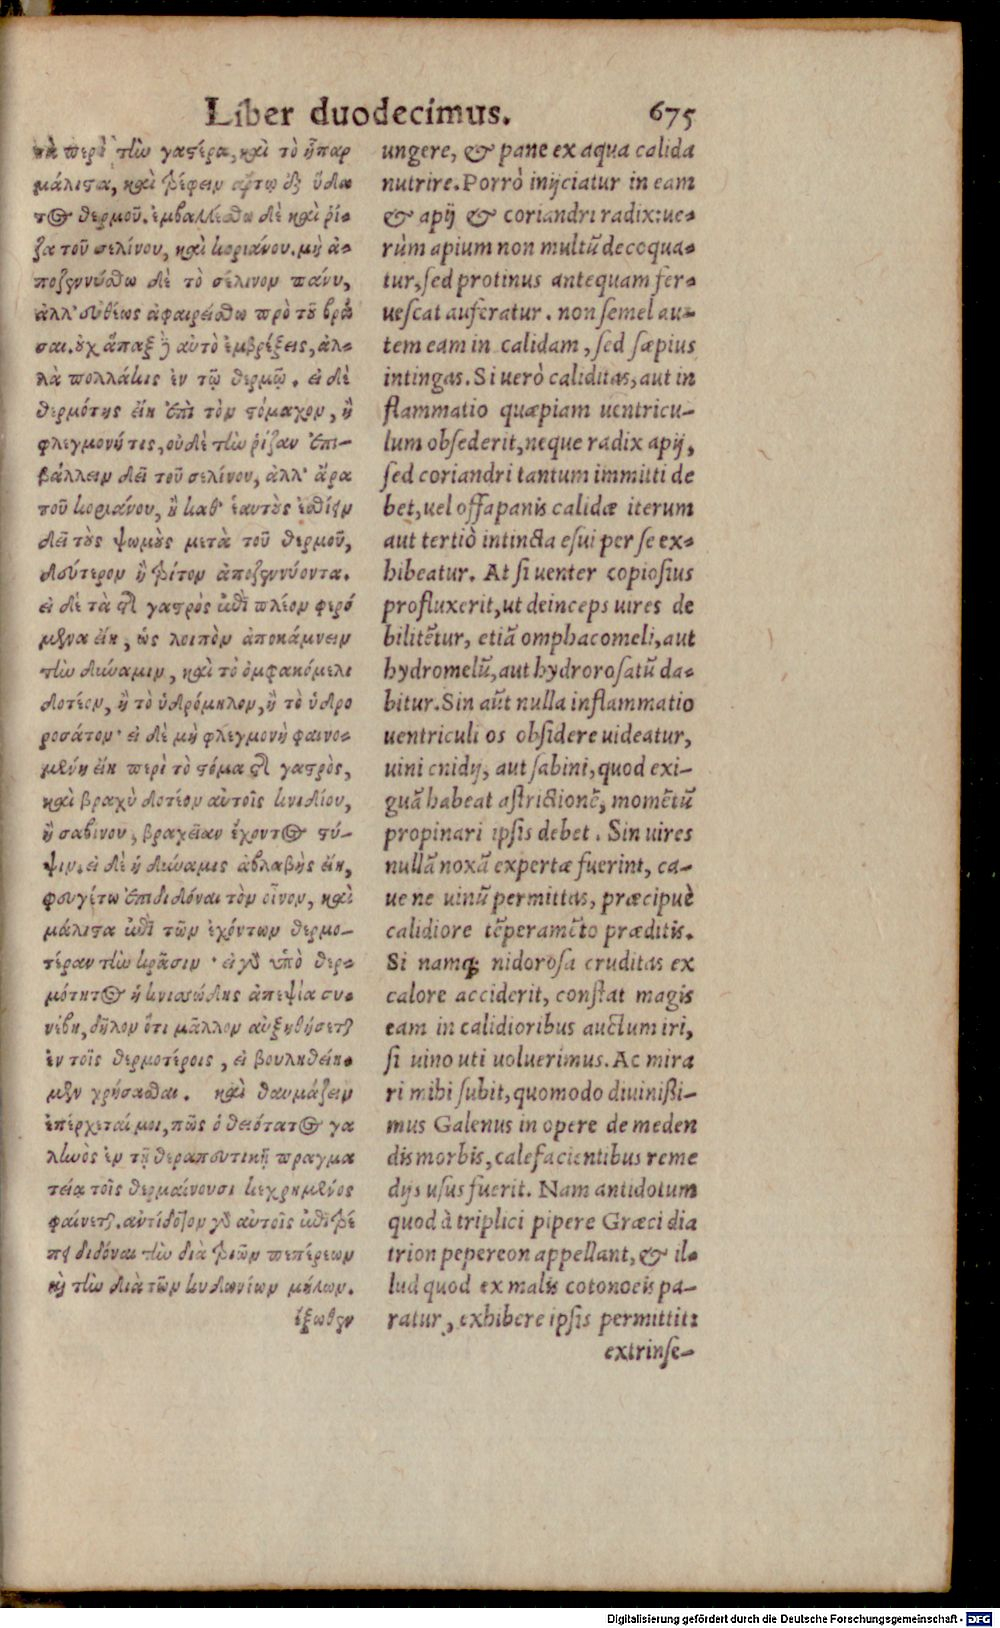 Liber duodecimus. 675
τὰ περὶ τὴν γαστέρα, καὶ τὸ ἧπαρ
μάλιστα, καὶ τρέφειν ἄρτῳ ἐξ ὕδα
τος θερμοῦ. ἐμβαλλέσθω δὲ καὶ ῥί-
ζα τοῦ σελίνου, καὶ κοριάνου. μὴ ἀ-
ποζεννύσθω δὲ τὸ σέλινον πάνυ,
ἀλλ' εὐθέως ἀφαιρείσθω πρὸ τοῦ βρά
σαι. οὐχ ἅπαξ δὲ αὐτὸ ἐμβρέξεις, ἀλ-
λὰ πολλάκις ἐν τῷ θερμῷ. εἰ δὲ
θερμότης εἴη ἐπὶ τὸν στόμαχον, ἢ
φλεγμονή τις, οὐδὲ τὴν ῥίζαν ἐπι-
βάλλειν δεῖ τοῦ σελίνου, ἀλλ' ἄρα
τοῦ κοριάνου, ἢ καθ' ἑαυτοὺς ἐσθίειν
δεῖ τοὺς ψωμοὺς μετὰ τοῦ θερμοῦ,
δεύτερον ἢ τρίτον ἀποζεννύοντα.
εἰ δὲ τὰ τῆς γαστρὸς ἐπὶ πλέον φερό
μενα εἴη, ὡς λοιπὸν ἀποκάμνειν
τὴν δύναμιν, καὶ τὸ ὀμφακόμελι
δοτέον, ἢ τὸ ὑδρόμηλον, ἢ τὸ ὑδρο
ροσάτον· εἰ δὲ μὴ φλεγμονὴ φαινο-
μένη εἴη περὶ τὸ στόμα τῆς γαστρὸς,
καὶ βραχὺ δοτέον αὐτοῖς κνιδίου,
ἢ σαβίνου, βραχεῖαν ἔχοντος στύ-
ψιν. εἰ δὲ ἡ δύναμις ἀβλαβὴς εἴη,
φευγέτω ἐπιδιδόναι τὸν οἶνον, καὶ
μάλιστα ἐπὶ τῶν ἐχόντων θερμο-
τέραν τὴν κρᾶσιν· εἰ γὰρ ὑπὸ θερ-
μότητος ἡ κνισώδης ἀπεψία συ-
νέβη, δῆλον ὅτι μᾶλλον αὐξηθήσεται
ἐν τοῖς θερμοτέροις, εἰ βουληθείη-
μεν χρήσασθαι. καὶ θαυμάζειν
ἐπέρχεταί μοι, πῶς ὁ θειότατος γα
ληνὸς ἐν τῇ θεραπευτικῇ πραγμα
τείᾳ τοῖς θερμαίνουσι κεχρημένος
φαίνεται. ἀντίδοτον γὰρ αὐτοῖς ἐπιτρέ
πει διδόναι τὴν διὰ τριῶν πεπέρεων
καὶ τὴν διὰ τῶν κυδωνίων μήλων.
ἔξωθεν
ungere, & pane ex aqua calida
nutrire. Porrò inijciatur in eam
& apij & coriandri radix: ue-
rùm apium non multũ decoqua-
tur, sed protinus antequam fer-
uescat auferatur. non semel au-
tem eam in calidam, sed sæpius
intingas. Si uerò caliditas, aut in
flammatio quæpiam uentricu-
lum obsederit, neque radix apij,
sed coriandri tantum immitti de
bet, uel offa panis calidæ iterum
aut tertiò intincta esui per se ex-
hibeatur. At si uenter copiosius
profluxerit, ut deinceps uires de
bilitẽtur, etiã omphacomeli, aut
hydromelũ, aut hydrorosatũ da-
bitur. Sin aũt nulla inflammatio
uentriculi os obsidere uideatur,
uini cnidij, aut sabini, quod exi-
guã habeat astrictionẽ, momẽtũ
propinari ipsis debet. Sin uires
nullã noxã expertæ fuerint, ca-
ue ne uinũ permittas, præcipuè
calidiore tẽperamẽto præditis.
Si namq; nidorosa cruditas ex
calore acciderit, constat magis
eam in calidioribus auctum iri,
si uino uti uoluerimus. Ac mira
ri mihi subit, quomodo diuinissi-
mus Galenus in opere de meden
dis morbis, calefacientibus reme
dijs usus fuerit. Nam antidotum
quod à triplici pipere Græci dia
trion pepereon appellant, & il-
lud quod ex malis cotoneis pa-
ratur, exhibere ipsis permittit:
extrinse-
Digitalisierung gefördert durch die Deutsche Forschungsgemeinschaft - DFG